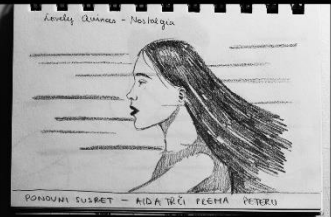 Lovely Quinces - Nostalgia
PONOVNI SUSRET - AIDA TRČI PREMA PEPERU